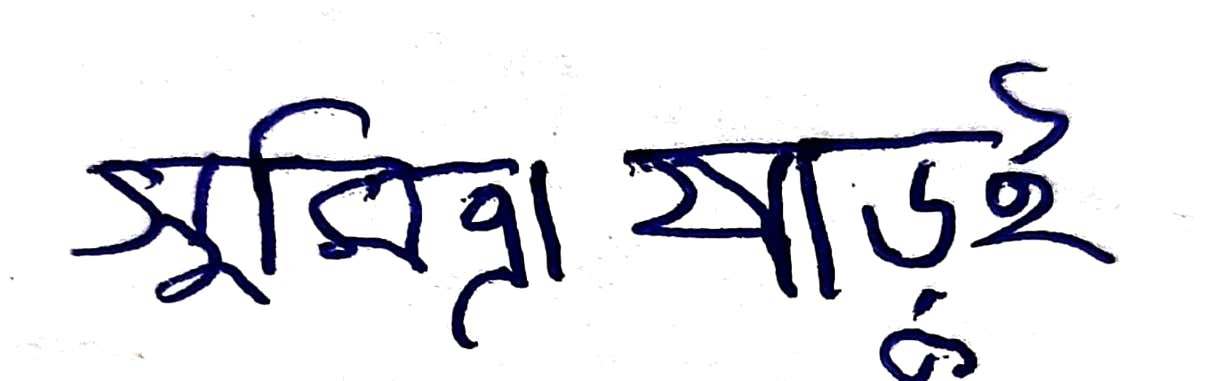 সুমিত্রা ষাড়ুই